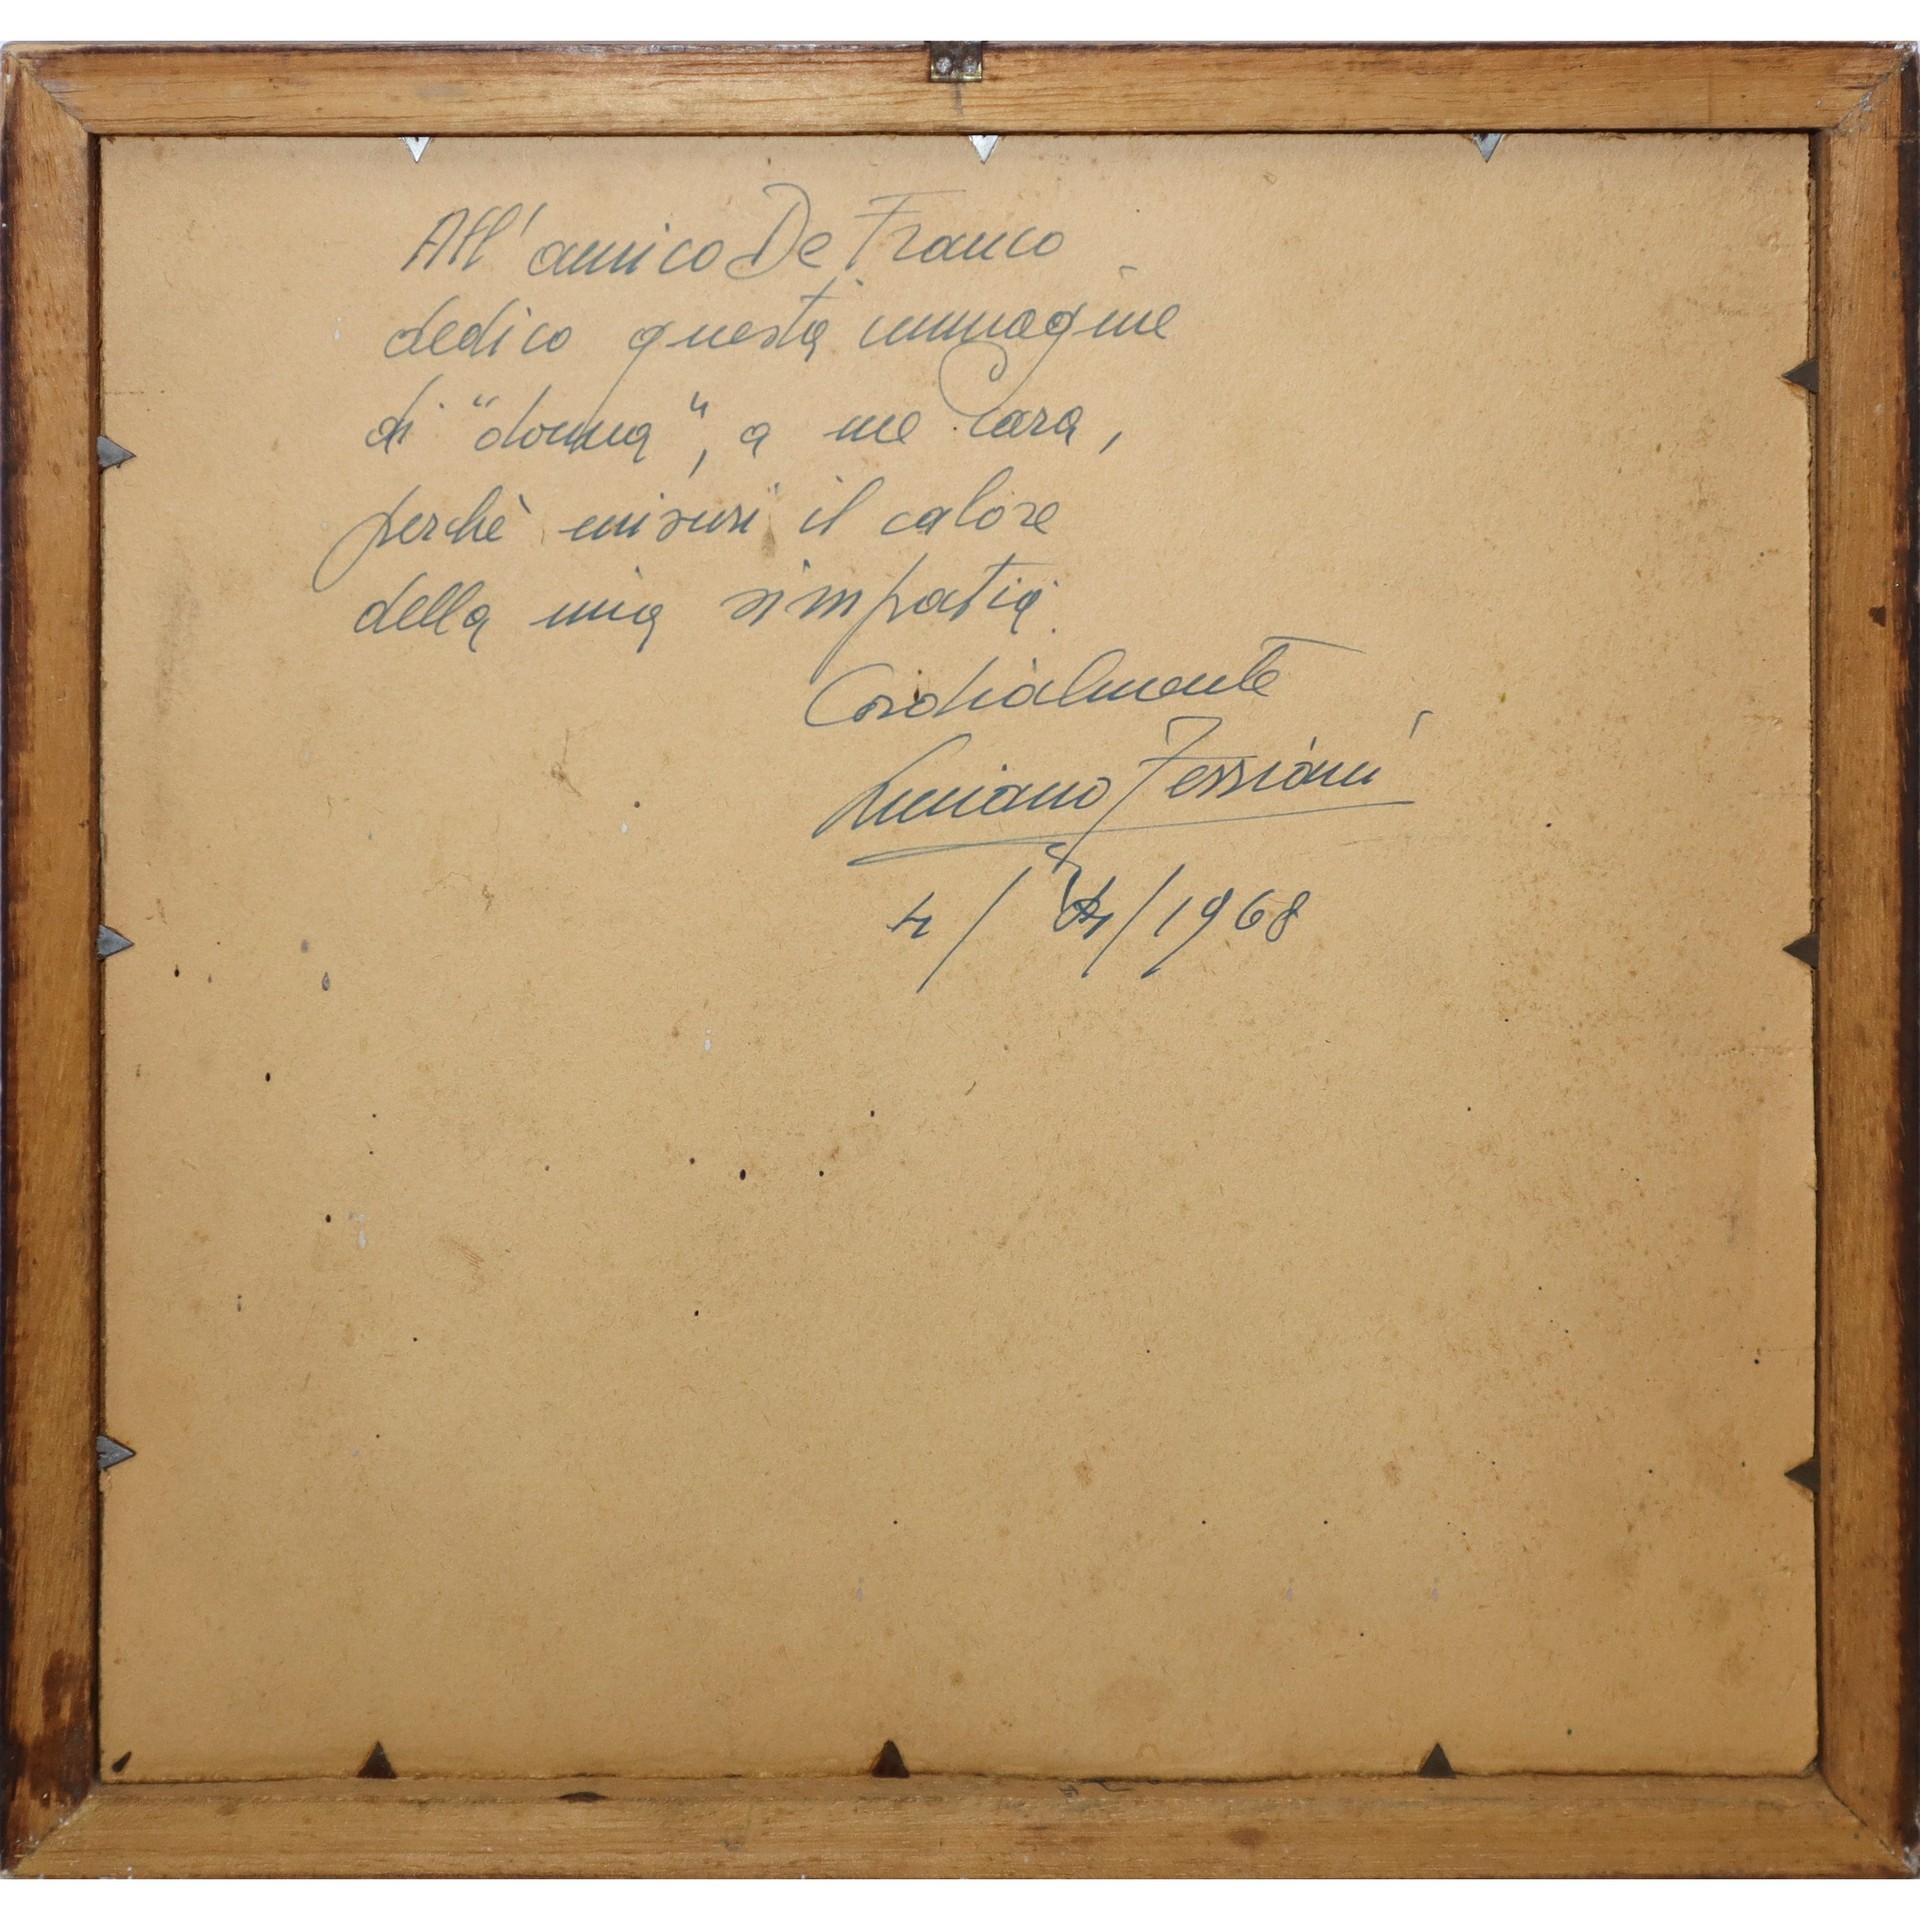 All'amico De Franco
dedico questa immagine
di "donna", a me cara,
perchè misuri il calore
della mia simpatia.
Cordialmente
Luciano
4/ /1968